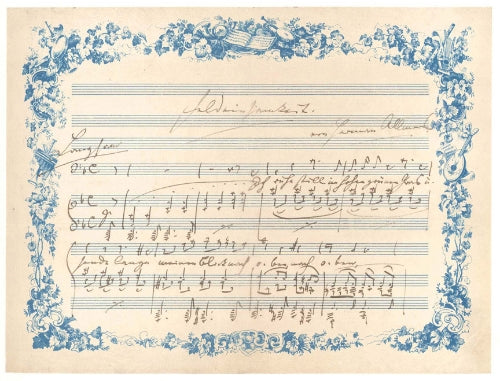 Feldeinsamkeit.
von Hermann Allmers
Langsam
Ich ruhe still im hohen grünen Gras u.
sende lange meinen Blick nach o-ben, nach o-ben,